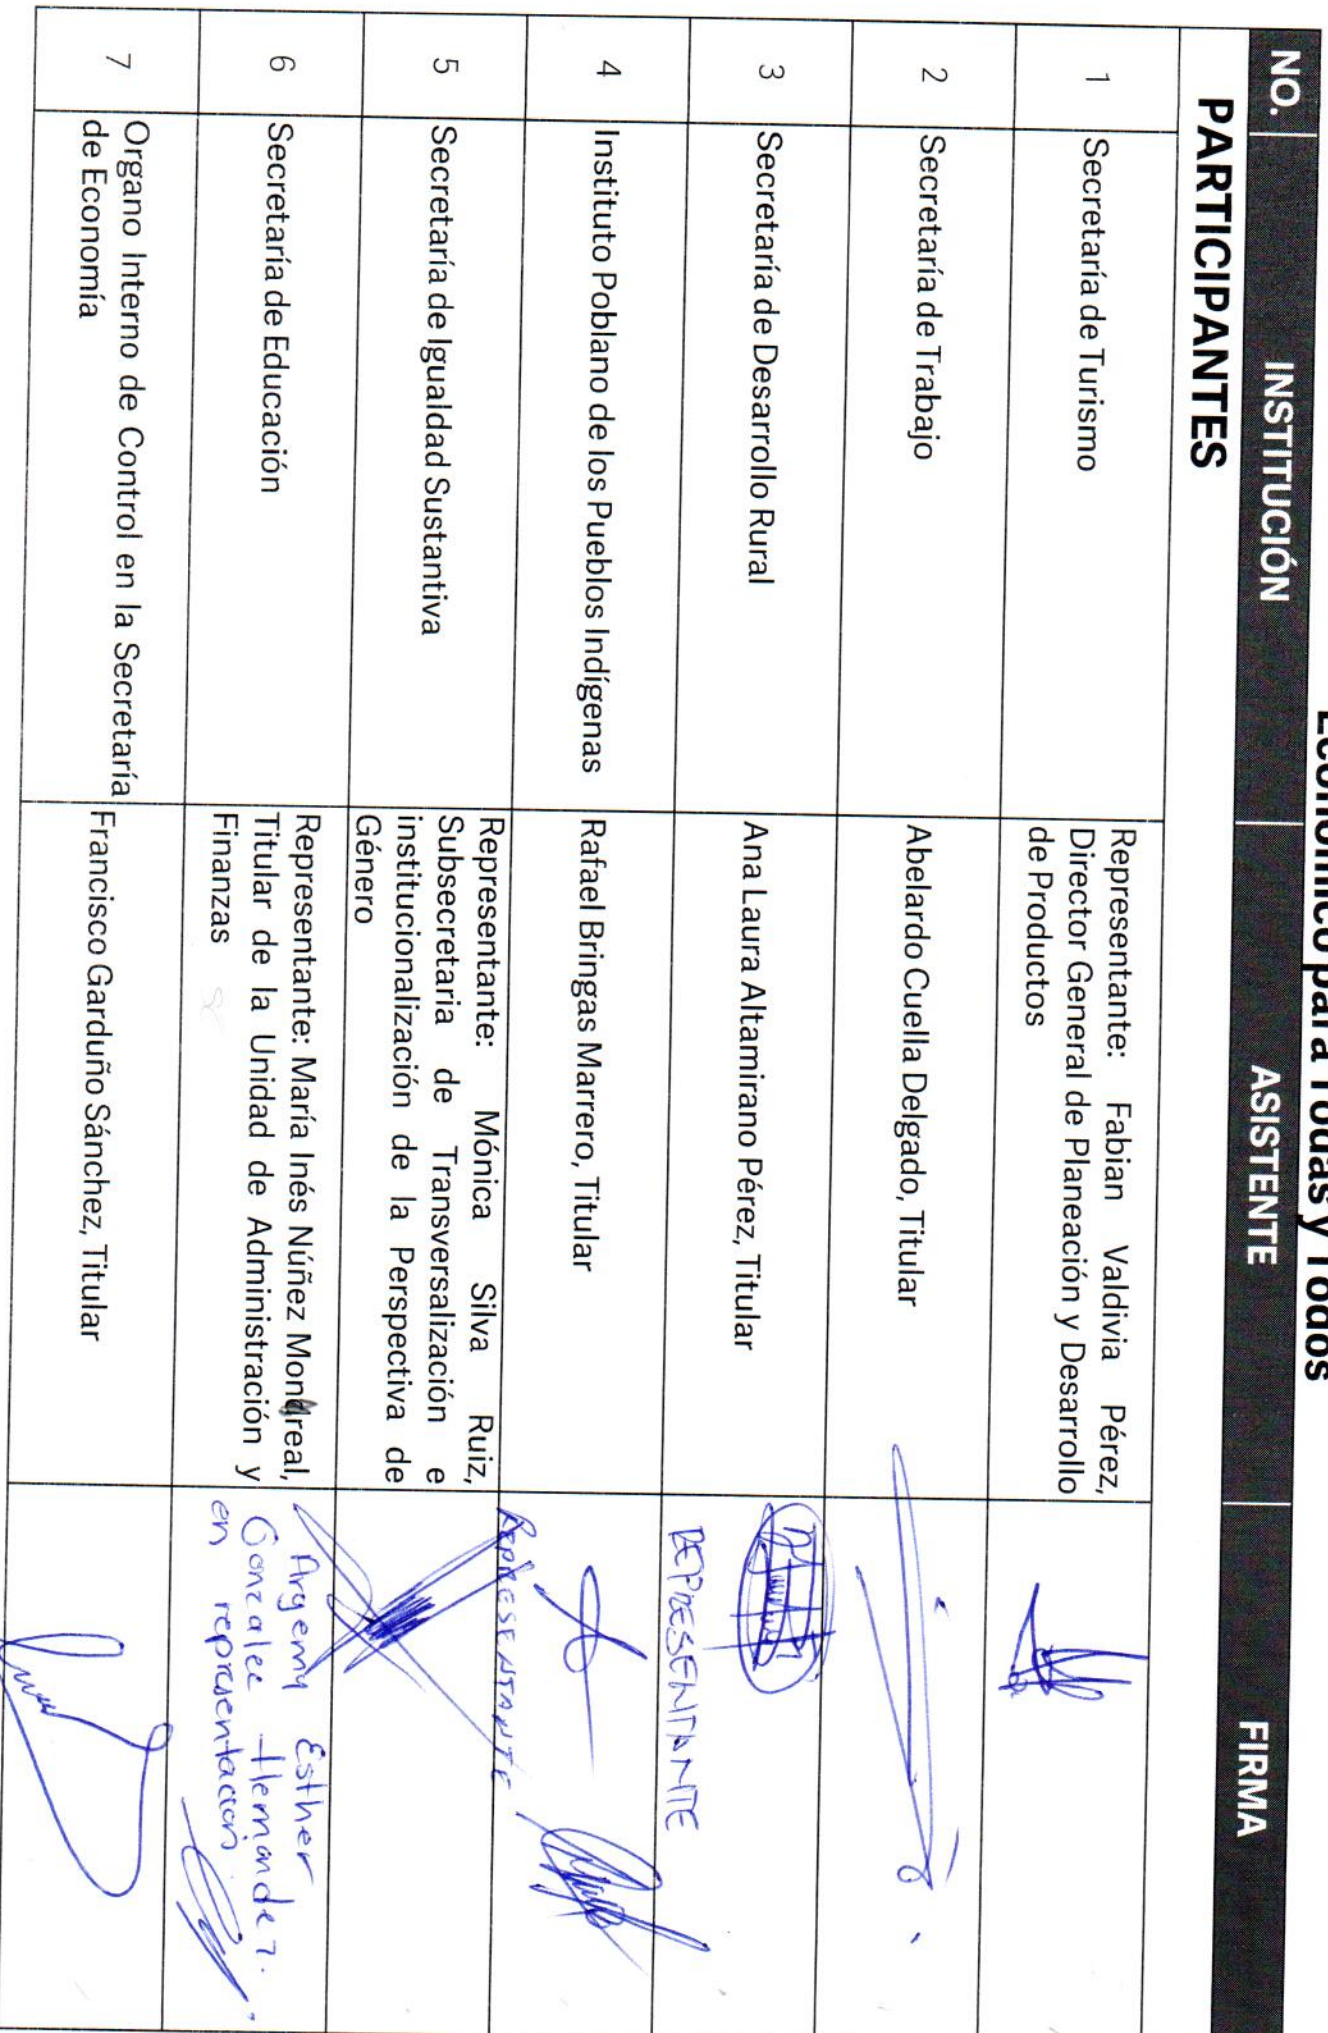 Económico para Todas y Todos
NO. INSTITUCIÓN ASISTENTE FIRMA
PARTICIPANTES
1 Secretaría de Turismo
Representante: Fabian Valdivia Pérez,
Director General de Planeación y Desarrollo
de Productos
2 Secretaría de Trabajo
Abelardo Cuella Delgado, Titular
3 Secretaría de Desarrollo Rural
Ana Laura Altamirano Pérez, Titular
REPRESENTANTE
4 Instituto Poblano de los Pueblos Indígenas
Rafael Bringas Marrero, Titular
REPRESENTANTE
5 Secretaría de Igualdad Sustantiva
Representante: Mónica Silva Ruiz,
Subsecretaria de Transversalización e
institucionalización de la Perspectiva de
Género
6 Secretaría de Educación
Representante: María Inés Núñez Mondreal,
Titular de la Unidad de Administración y
Finanzas
Argemy Esther
Gonzalez Hernández.
en representacion
7 Organo Interno de Control en la Secretaría
de Economía
Francisco Garduño Sánchez, Titular